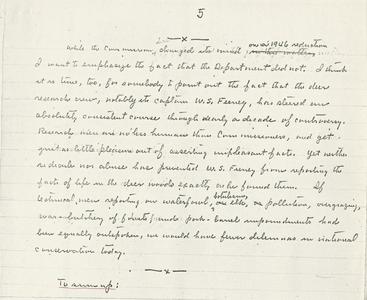 5
—x—
While the Commission changed its mind on a 1946 reduction
I want to emphasize the fact that the Department did not. I think
it is time, too, for somebody to point out the fact that the deer
research crew, notably its captain W.S. Feeney, has steered an
absolutely consistent course through nearly a decade of controversy.
Research men are no less humans than Commissioners, and get
just as little pleasure out of asserting unpleasant facts. Yet neither
ridicule nor abuse has prevented W.S. Feeney from reporting the
facts of life in the deer woods exactly as he found them. If
technical men reporting on waterfowl, on elk, on pollution, overgrazing,
or on butchery of private lands pork-barrel impoundments had
been equally outspoken, we would have fewer dilemmas in national
conservation today.
—x—
To sum up: